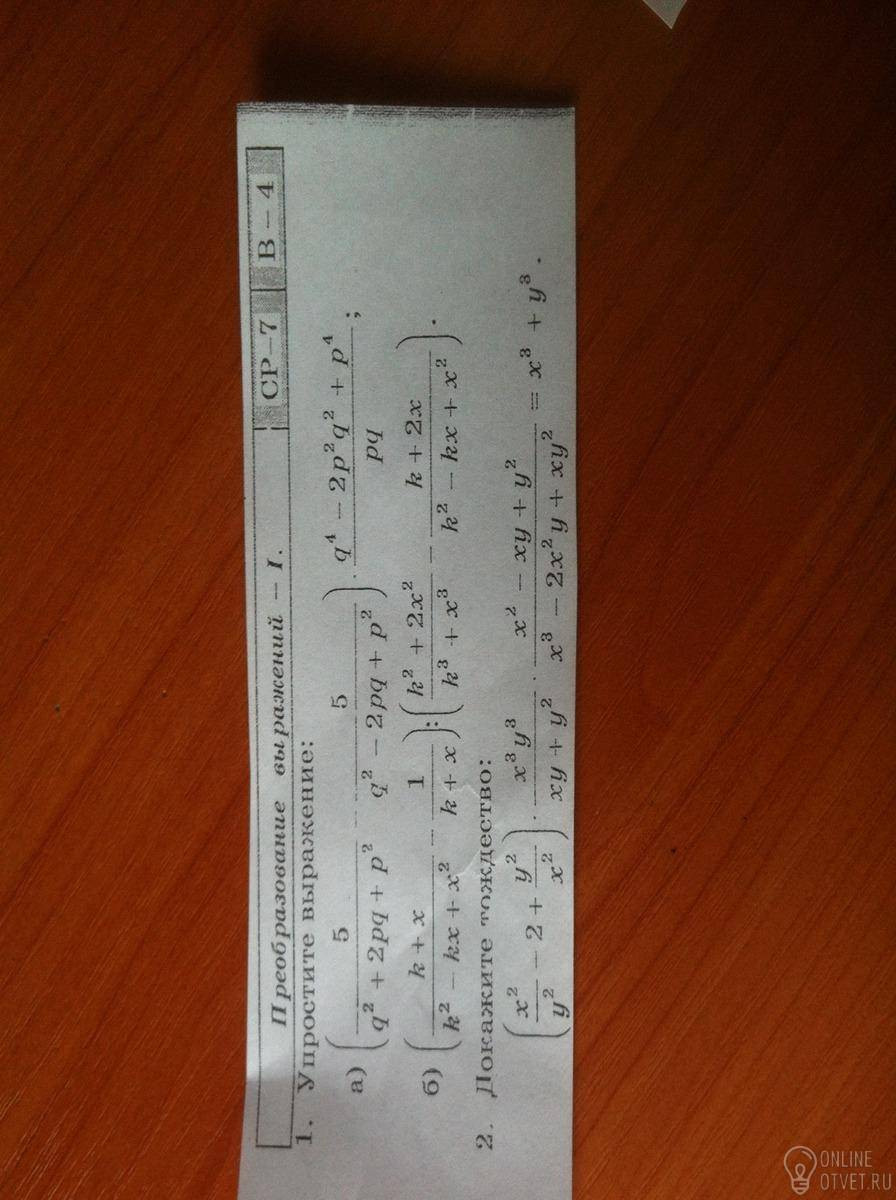 Преобразование выражений – I. СР–7 В – 4
1. Упростите выражение:
а) (5/(q² + 2pq + p²) − 5/(q² − 2pq + p²)) · (q⁴ − 2p²q² + p⁴)/(pq);
б) ((k + x)/(k² − kx + x²) − 1/(k + x)) : ((k² + 2x²)/(k³ + x³) − (k + 2x)/(k² − kx + x²)).
2. Докажите тождество:
(x²/y² − 2 + y²/x²) · (x³y³)/(xy + y²) · (x² − xy + y²)/(x³ − 2x²y + xy²) = x³ + y³.
ONLINE
OTVET.RU